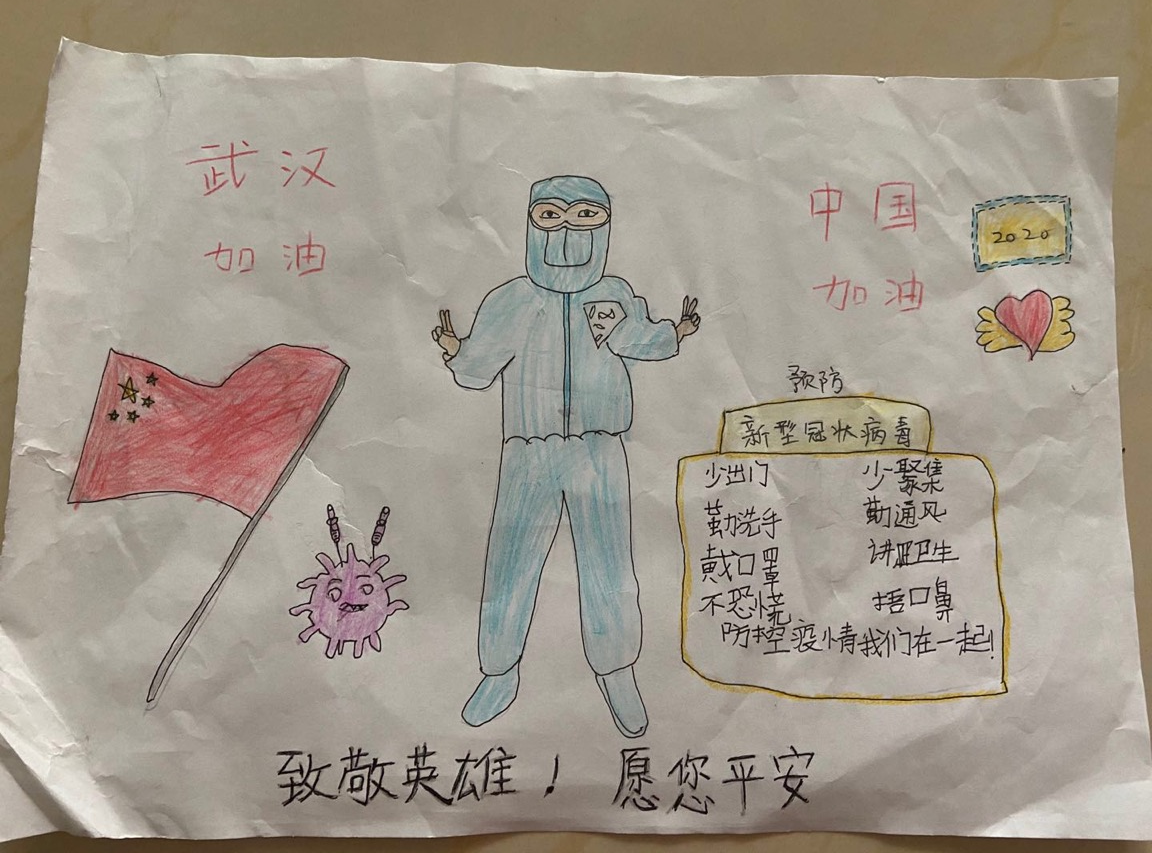 武汉
加油
中国
加油
2020
预防
新型冠状病毒
少出门 少聚集
勤洗手 勤通风
戴口罩 讲卫生
不恐慌 捂口鼻
防控疫情我们在一起!
致敬英雄！愿您平安